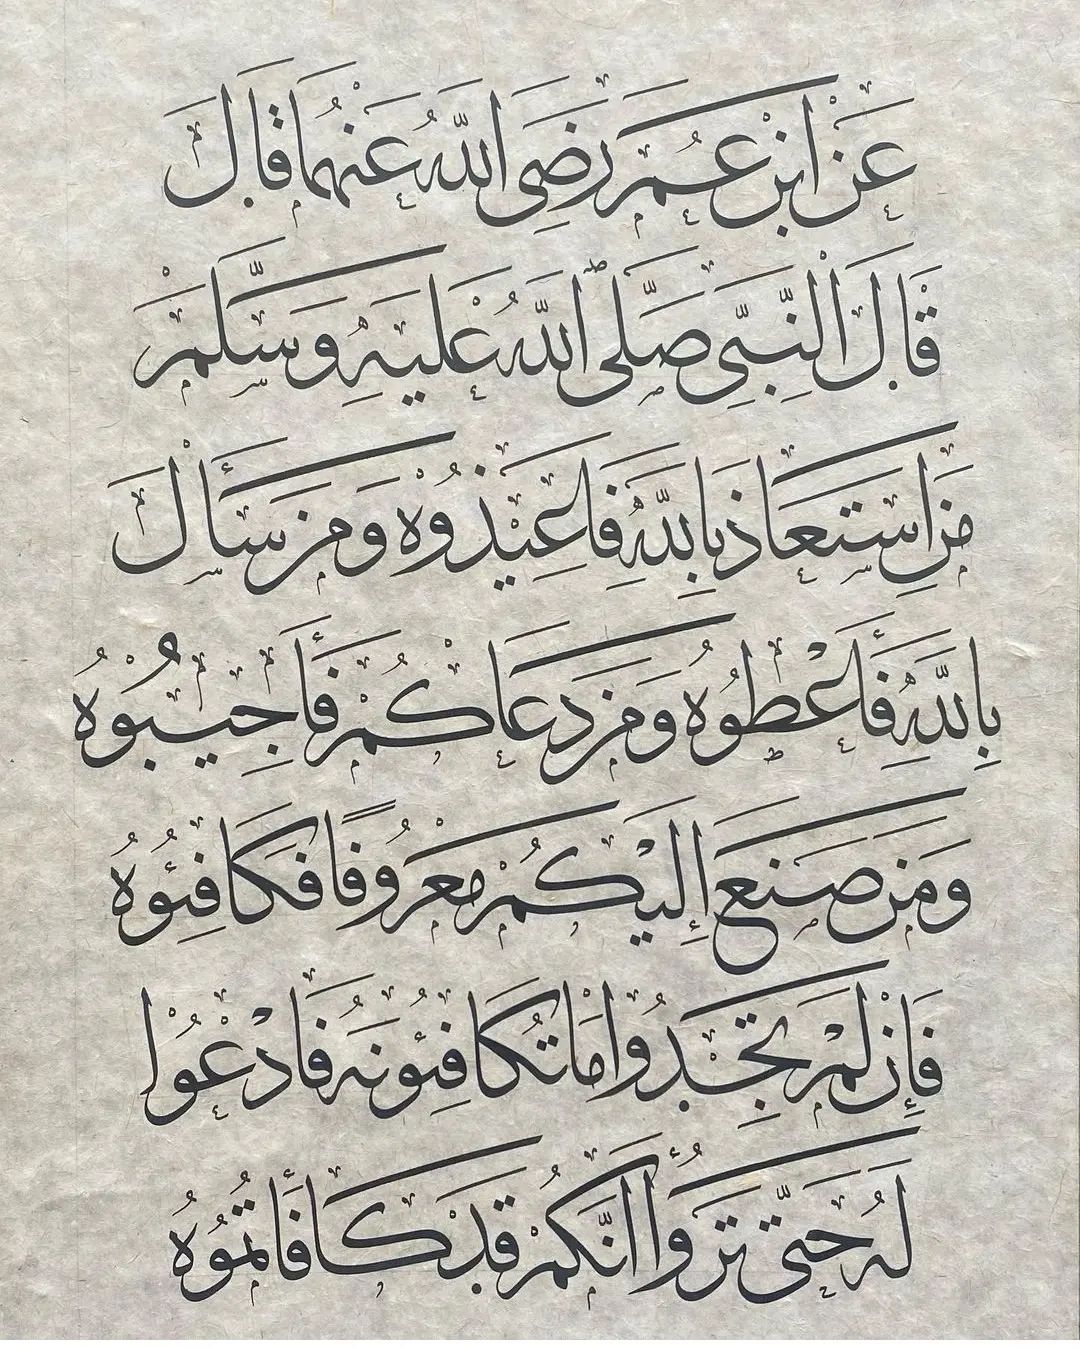 عَنْ ابْنِ عُمَرَ رَضِيَ اللَّهُ عَنْهُمَا قَالَ
قَالَ النَّبِيُّ صَلَّى اللَّهُ عَلَيْهِ وَسَلَّمَ
مَنِ اسْتَعَاذَ بِاللَّهِ فَاَعِيْذُوْهُ وَمَنْ سَأَلَ
بِاللَّهِ فَأَعْطُوهُ وَمَنْ دَعَاكُمْ فَأَجِيْبُوهُ
وَمَنْ صَنَعَ إِلَيْكُمْ مَعْرُوفًا فَكَافِئُوهُ
فَإِنْ لَمْ تَجِدُوا مَا تُكَافِئُونَهُ فَادْعُوا
لَهُ حَتَّى تَرَوْا أَنَّكُمْ قَدْ كَافَأْتُمُوهُ